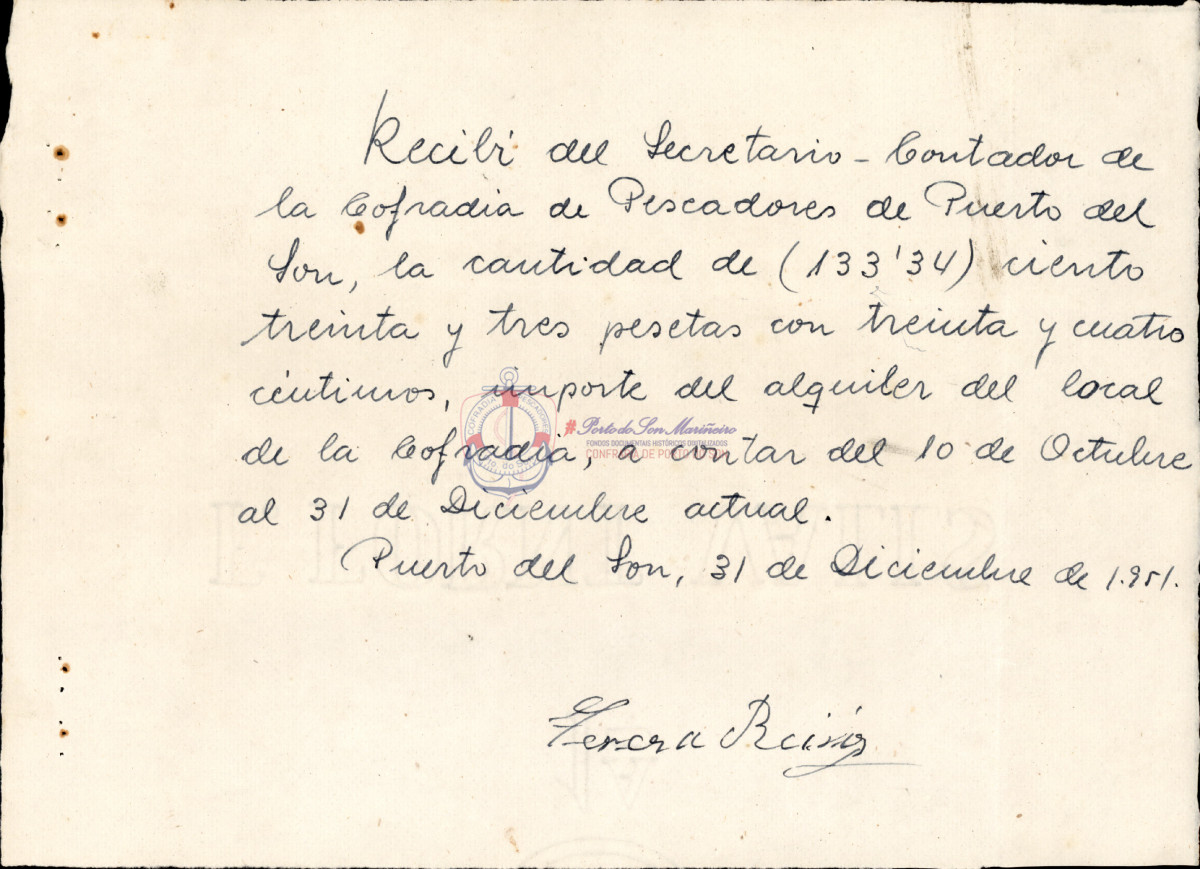 Recibí del Secretario-Contador de
la Cofradia de Pescadores de Puerto del
Son, la cantidad de (133'34) ciento
treinta y tres pesetas con treinta y cuatro
céntimos, importe del alquiler del local
de la Cofradia, a contar del 10 de Octubre
al 31 de Diciembre actual.
Puerto del Son, 31 de Diciembre de 1.951.
#Porto do Son Mariñeiro
FONDOS DOCUMENTAIS HISTÓRICOS DIXITALIZADOS
CONFRARÍA DE PORTO DO SON
COFRADIA PESCADORES
Pto. do Son